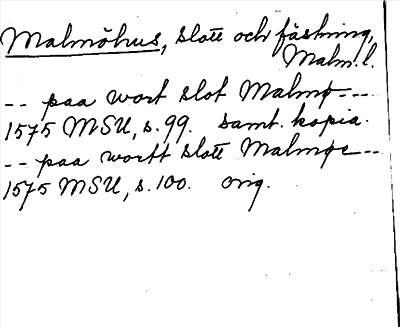 Malmöhus, slott och fästning,
Malm. l.
-- paa wort slot Malmø ---
1575 MSU, s. 99. samt. kopia.
-- paa wortt slott Malmøe --
1575 MSU, s. 100. orig.